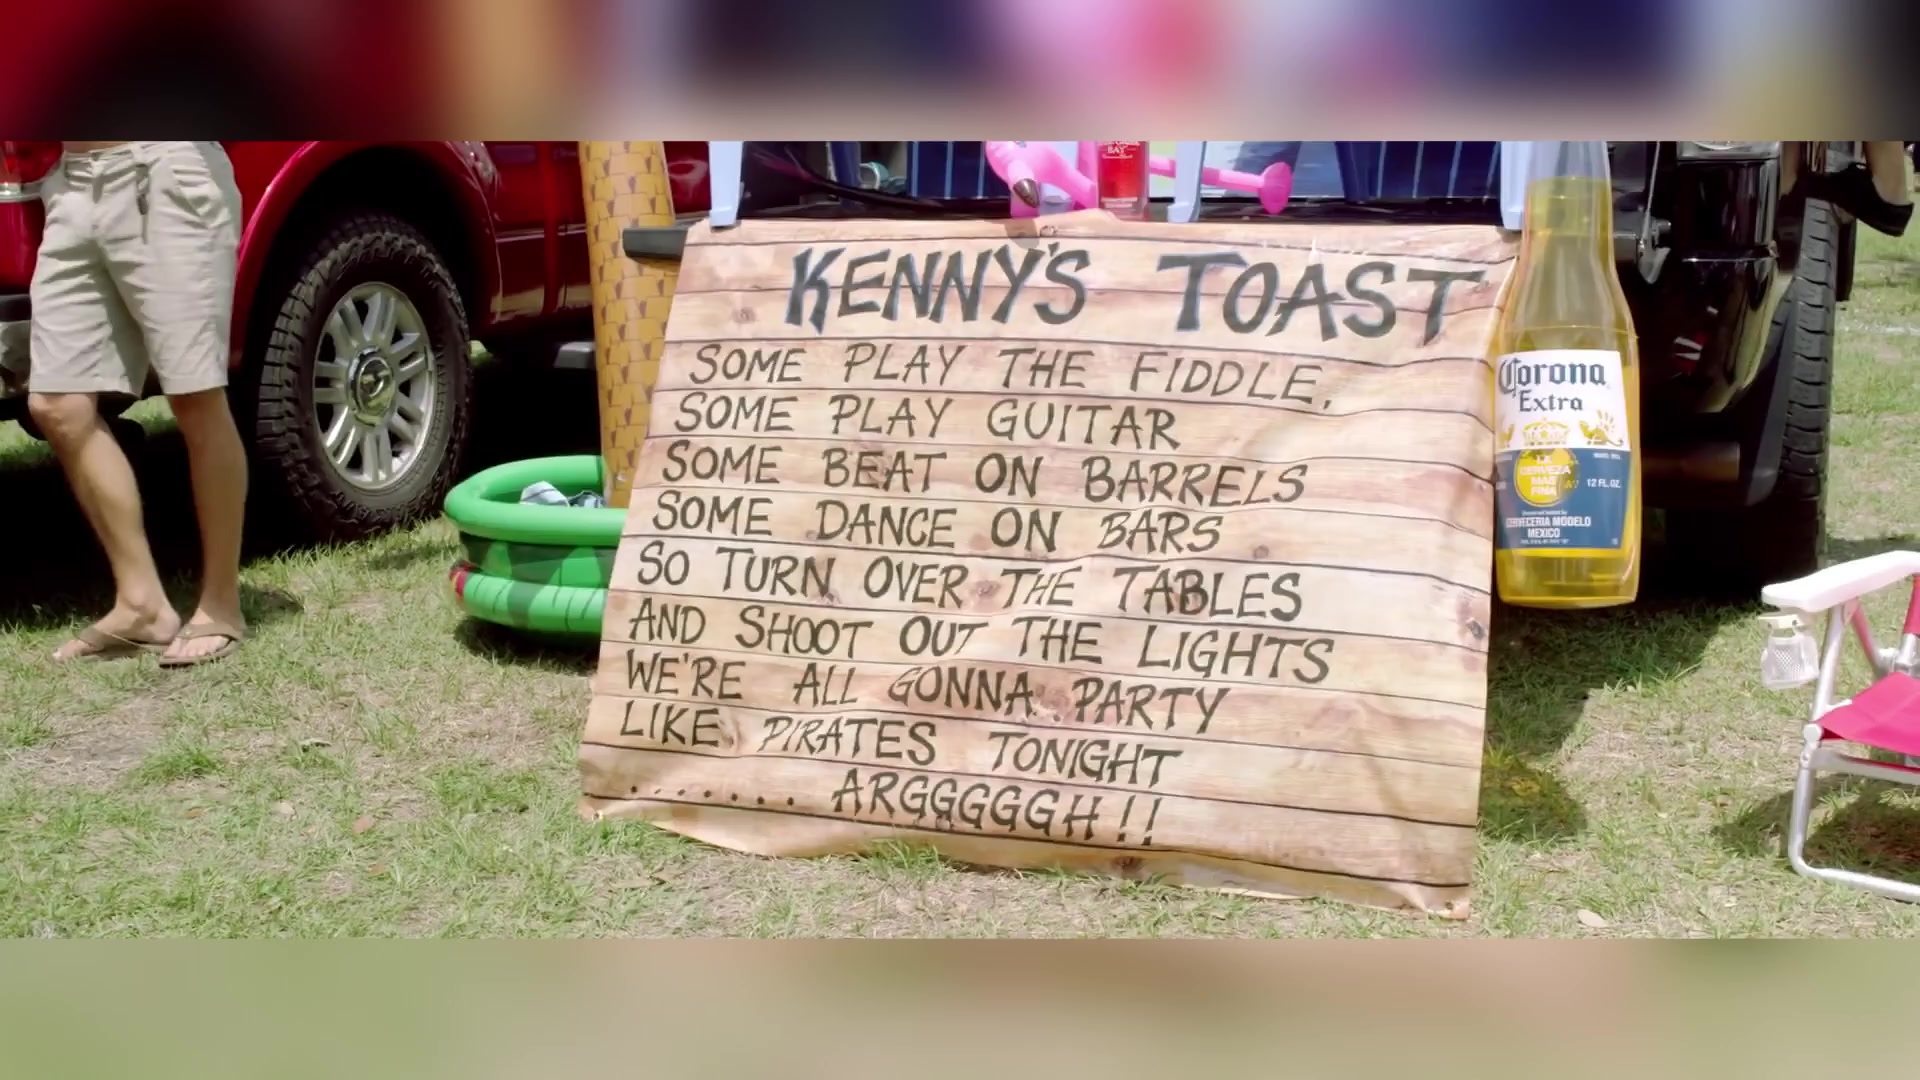 BAY
KENNY'S TOAST
SOME PLAY THE FIDDLE,
SOME PLAY GUITAR
SOME BEAT ON BARRELS
SOME DANCE ON BARS
SO TURN OVER THE TABLES
AND SHOOT OUT THE LIGHTS
WE'RE ALL GONNA PARTY
LIKE PIRATES TONIGHT
....... ARGGGGGH!!
Corona
Extra
LA
CERVEZA
MAS
FINA
12 FL. OZ.
CERVECERIA MODELO
MEXICO